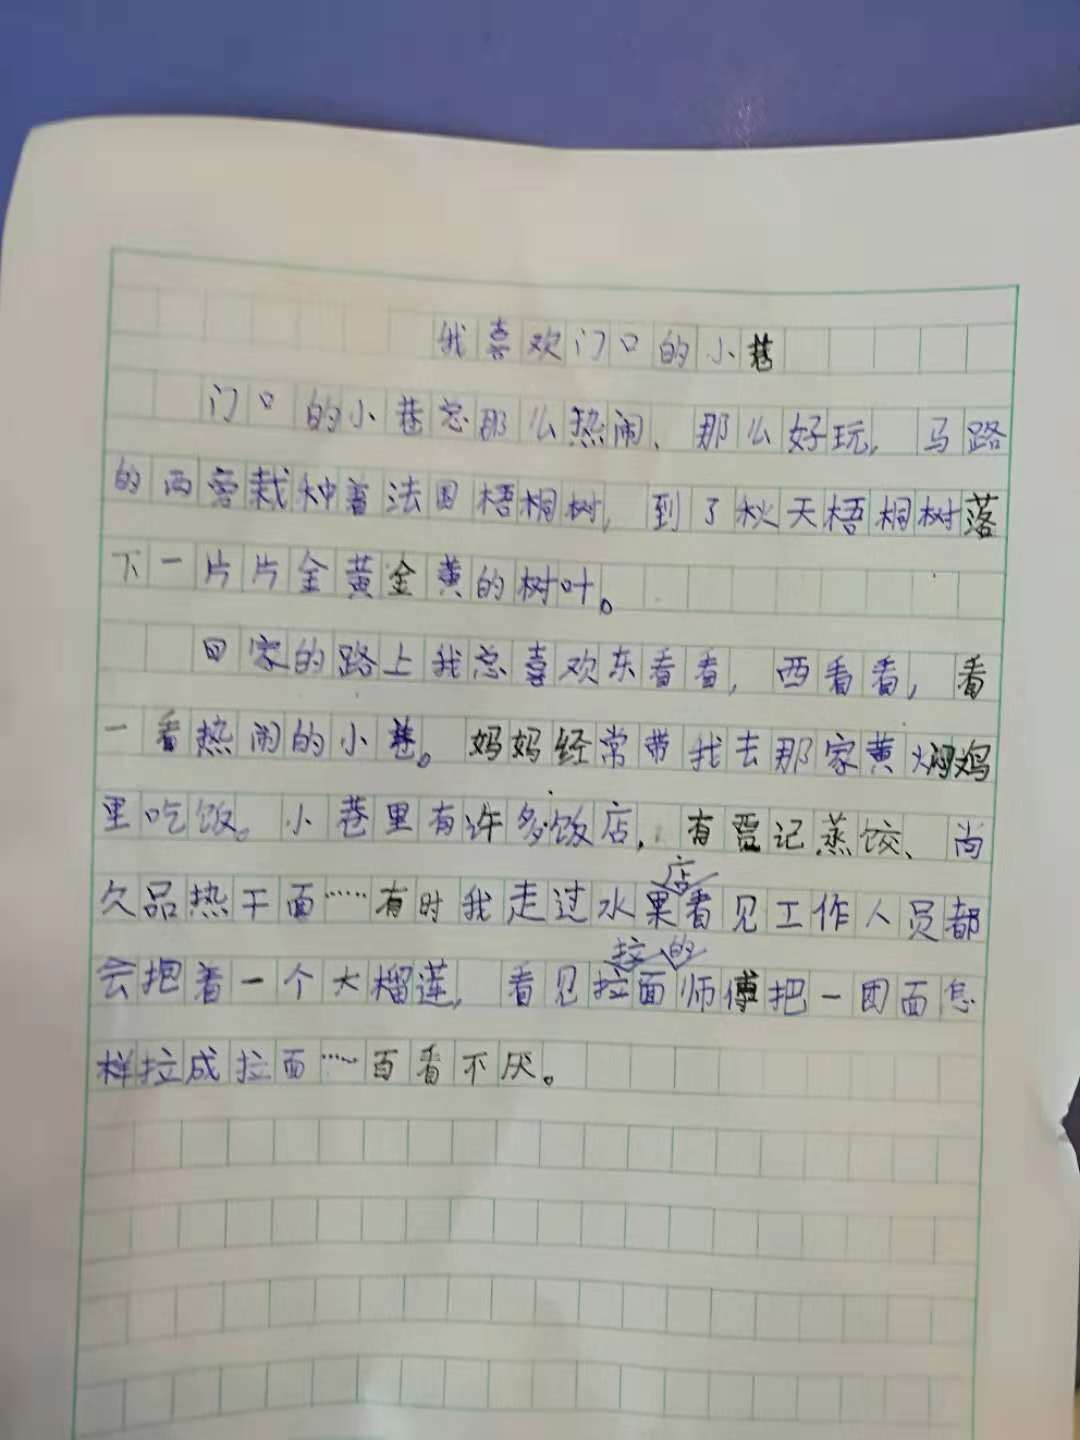 我喜欢门口的小巷
门口的小巷总那么热闹、那么好玩，马路
的两旁栽种着法国梧桐树，到了秋天梧桐树落
下一片片金黄金黄的树叶。
回家的路上我总喜欢东看看，西看看，看
一看热闹的小巷。妈妈经常带我去那家黄焖鸡
里吃饭。小巷里有许多饭店，有贾记蒸饺、尚
久品热干面……有时我走过水果店看见工作人员都
会把着一个大榴莲，看见拉拉面的师傅把一团面怎
样拉成拉面……百看不厌。